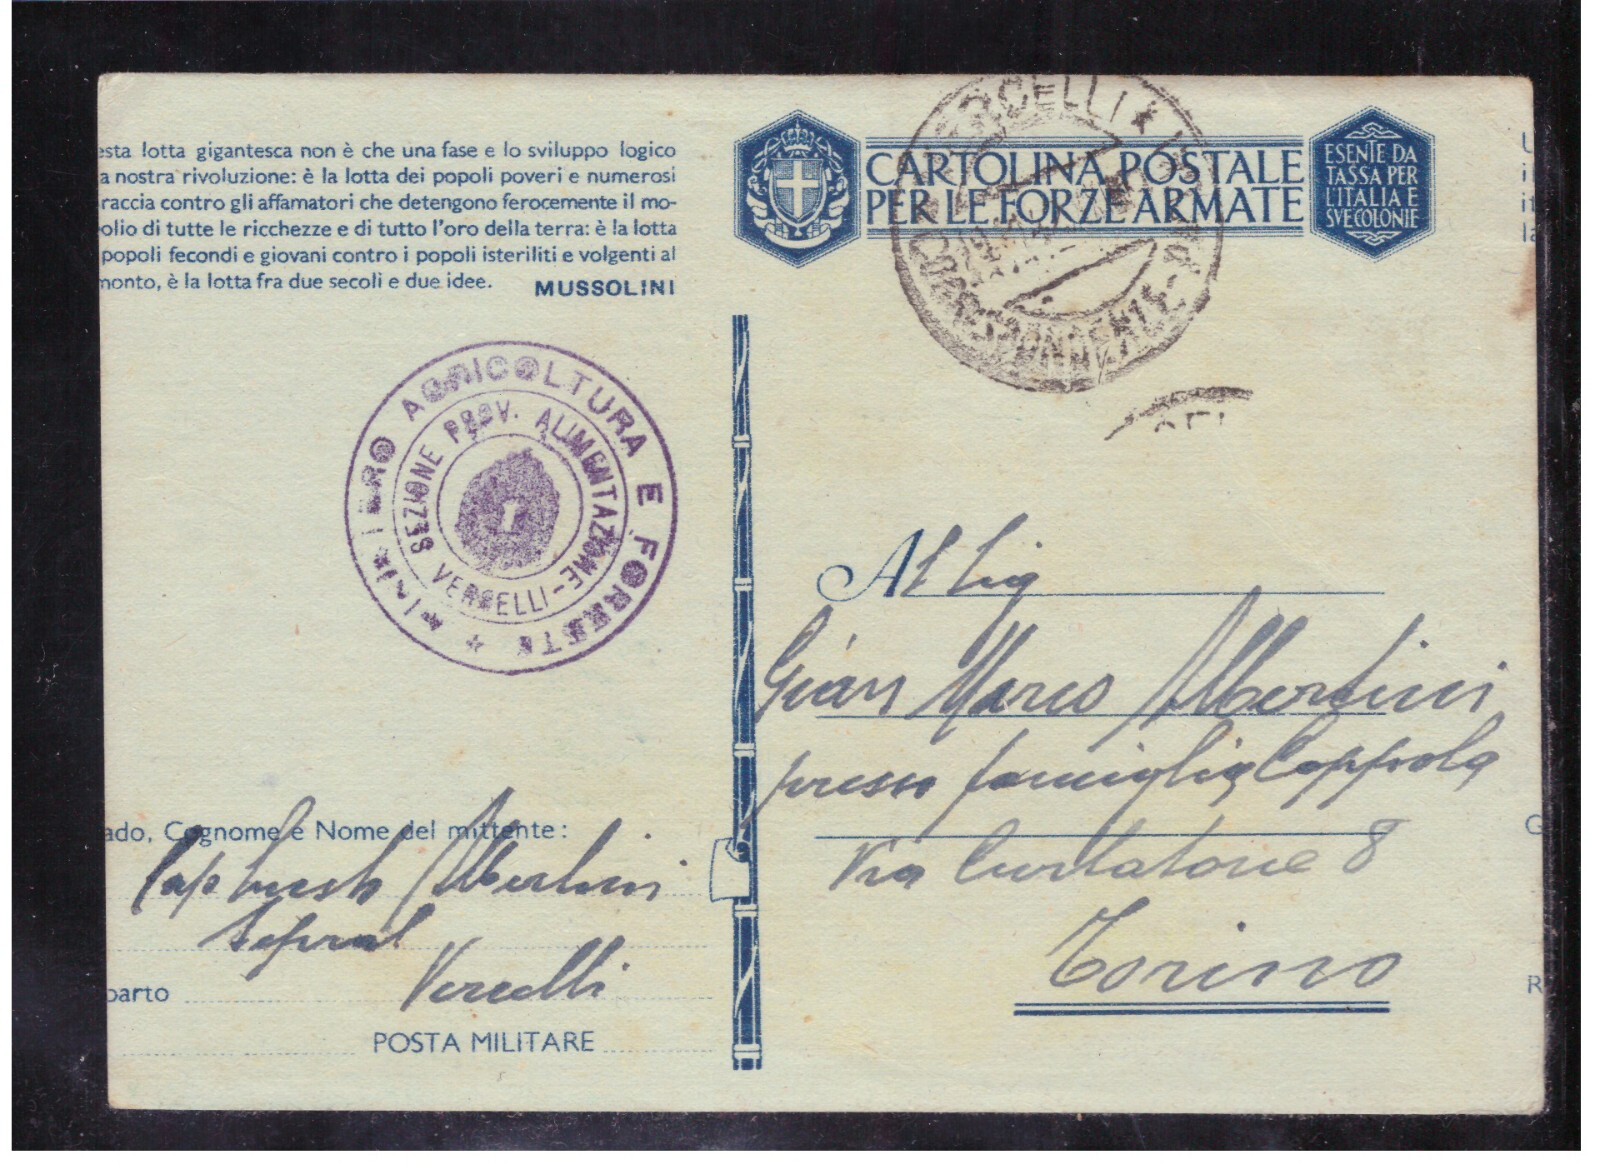 esta lotta gigantesca non è che una fase e lo sviluppo logico
a nostra rivoluzione: è la lotta dei popoli poveri e numerosi
raccia contro gli affamatori che detengono ferocemente il mo-
olio di tutte le ricchezze e di tutto l'oro della terra: è la lotta
popoli fecondi e giovani contro i popoli isteriliti e volgenti al
monto, è la lotta fra due secoli e due idee.
MUSSOLINI
CARTOLINA POSTALE
PER LE FORZE ARMATE
ESENTE DA
TASSA PER
L'ITALIA E
SVE COLONIE
CORRISPONDENZE
AGRICOLTURA E FORESTE
SEZIONE PROV. ALIMENTAZIONE - VERCELLI
Al Sig
Gian Marco Albertini
presso famiglia Coppola
Via Curtatone 8
Torino
ado, Cognome e Nome del mittente:
Cap Albertini
Sepral
Vercelli
parto
POSTA MILITARE